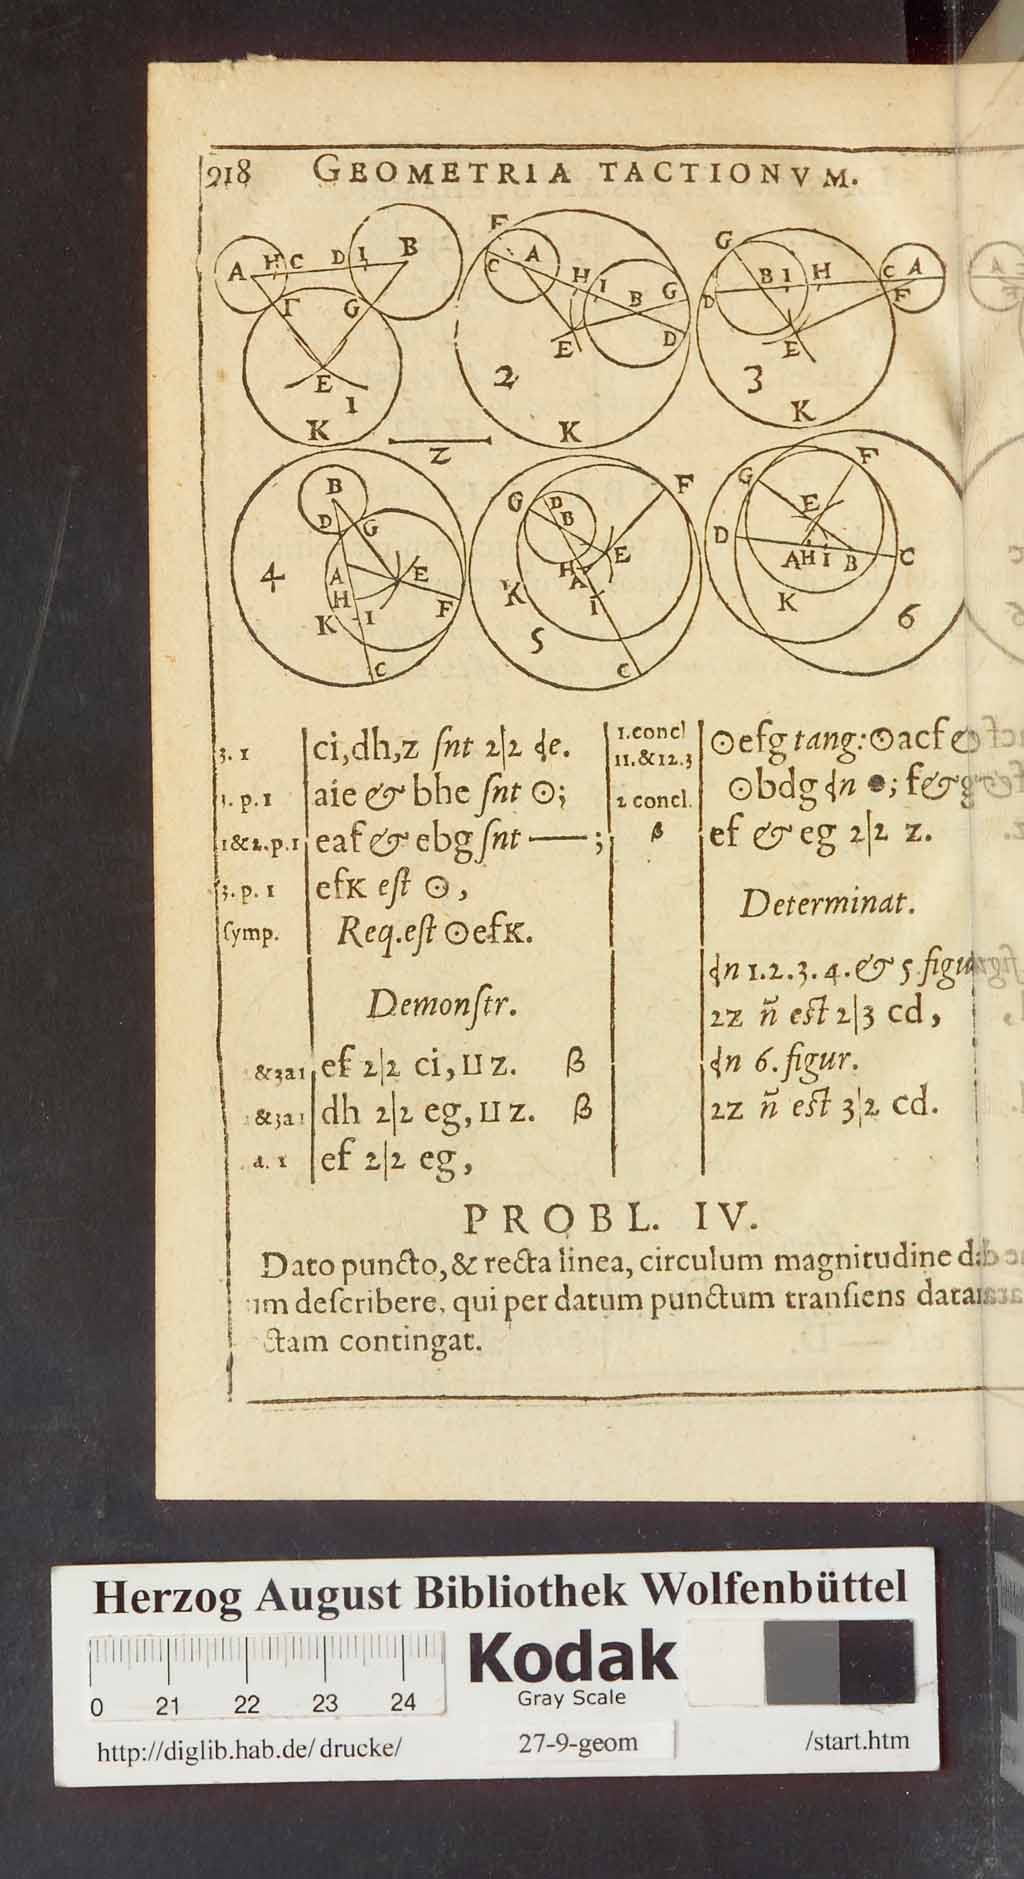 918 GEOMETRIA TACTIONVM.
A H C D I B
F G
E
1
K
F
C A H I B G
E D
2
K
G
B I H C A
D F
E
3
K
Z
B
D G
A E
H
K I F
4
C
G D B F
E
H
A
K I
5
C
F
G
E
D A H I B C
K
6
3. 1 ci, dh, z ſnt 2|2
1. p. 1 aie & bhe ſnt ⊙;
1&2. p. 1 eaf & ebg ſnt —;
3. p. 1 efK eſt ⊙,
ſymp. Req. eſt ⊙efK.
Demonſtr.
&3a1 ef 2|2 ci, ⊔ z. β
&3a1 dh 2|2 eg, ⊔ z. β
a. 1 ef 2|2 eg,
1. concl ⊙efg tang: ⊙acf &
11. & 12. 3
2 concl. ⊙bdg ●; f&g
β ef & eg 2|2 z.
Determinat.
1. 2. 3. 4. & 5. figu
2z ñ eſt 2|3 cd,
6. figur.
2z ñ eſt 3|2 cd.
PROBL. IV.
Dato puncto, & recta linea, circulum magnitudine
um deſcribere, qui per datum punctum tranſiens datam
ctam contingat.
Herzog August Bibliothek Wolfenbüttel
Kodak
Gray Scale
0 21 22 23 24
http://diglib.hab.de/ drucke/ 27-9-geom /start.htm